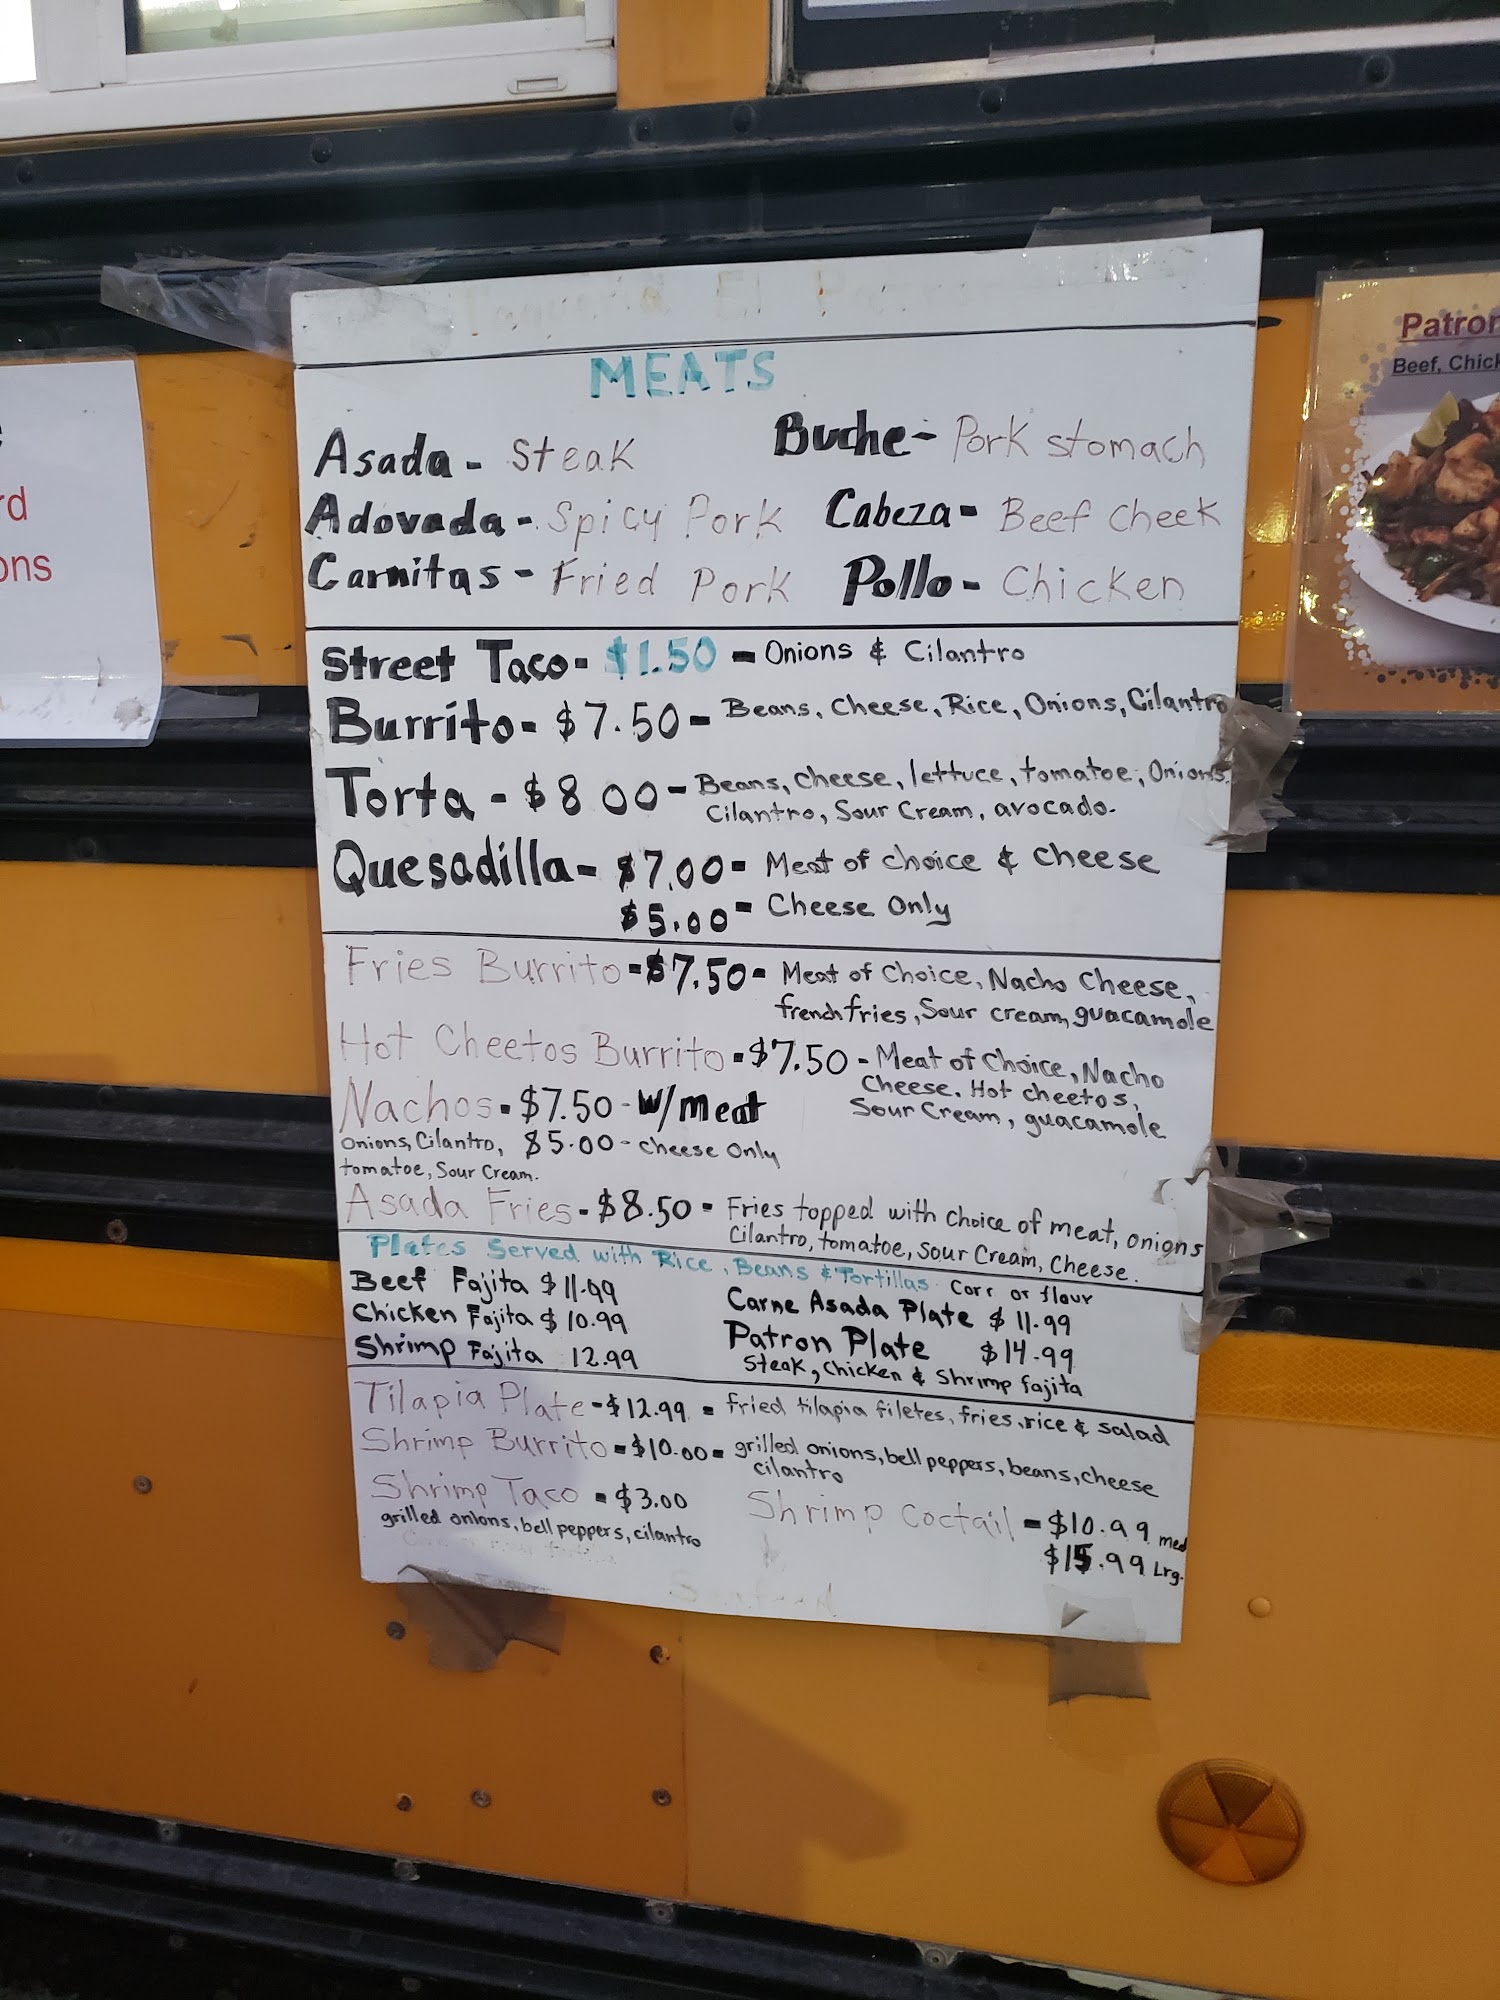 Taqueria El Patron
MEATS
Asada - Steak
Buche - Pork stomach
Adovada - Spicy Pork
Cabeza - Beef Cheek
Carnitas - Fried Pork
Pollo - Chicken
Street Taco - $1.50 - Onions & Cilantro
Burrito - $7.50 - Beans, Cheese, Rice, Onions, Cilantro
Torta - $8 00 - Beans, Cheese, lettuce, tomatoe, Onions,
Cilantro, Sour Cream, avocado.
Quesadilla - $7.00 - Meat of choice & Cheese
$5.00 - Cheese Only
Fries Burrito - $7.50 - Meat of Choice, Nacho Cheese,
french fries, Sour cream, guacamole
Hot Cheetos Burrito - $7.50 - Meat of Choice, Nacho
Cheese. Hot cheetos,
Sour Cream, guacamole
Nachos - $7.50 - W/meat
Onions, Cilantro, $5.00 - Cheese Only
tomatoe, Sour Cream.
Asada Fries - $8.50 - Fries topped with choice of meat, onions
Cilantro, tomatoe, Sour Cream, Cheese.
Plates Served with Rice, Beans & Tortillas Corr or flour
Beef Fajita $11.99
Chicken Fajita $10.99
Shrimp Fajita 12.99
Carne Asada Plate $11.99
Patron Plate $14.99
Steak, Chicken & Shrimp fajita
Tilapia Plate - $12.99 - fried tilapia filetes, fries, rice & salad
Shrimp Burrito - $10.00 - grilled onions, bell peppers, beans, cheese
cilantro
Shrimp Taco - $3.00
grilled onions, bell peppers, cilantro
Shrimp Coctail - $10.99 med
$15.99 Lrg.
Patron
Beef, Chick
rd
ons